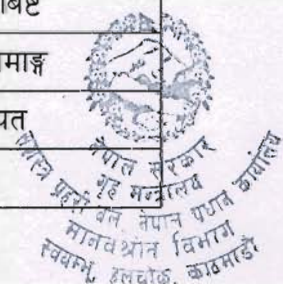 बिष्ट
माङ्ग
पत
नेपाल सरकार
गृह मन्त्रालय
सशस्त्र प्रहरी बल, नेपाल प्रधान कार्यालय
मानवश्रोत विभाग
स्वयम्भू, हलचोक, काठमाडौं